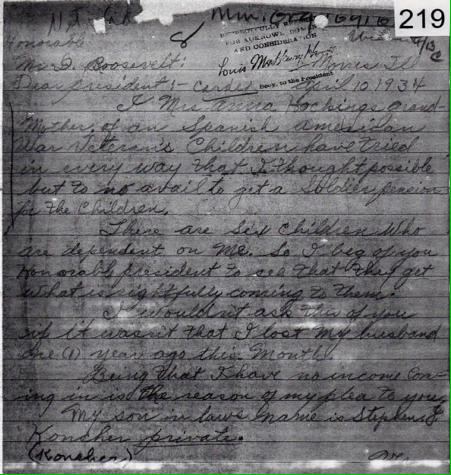 219
Honorable
Mr. D. Roosevelt:
RESPECTFULLY
FOR ACKNOWLEDGMENT
AND CONSIDERATION
Secy. to the President
Dear president:- April 10, 1934
I Mrs Anna Hockings grand-
Mother, of an Spanish American
War Veteran's Children have tried
in every way that I thought possible
but to no avail to get a Soldier pension
for the Children.
There are six Children who
are dependent on me. So I beg of you
Honorable president to see that they get
what is rightfully coming to them.
I wouldn't ask this of you
if it wasn't that I lost My husband
one (1) year ago this Month.
Being that I have no income Com-
ing in is the reason of my plea to you,
My son in laws name is Stephen J
Konsher private.
(Konsher)